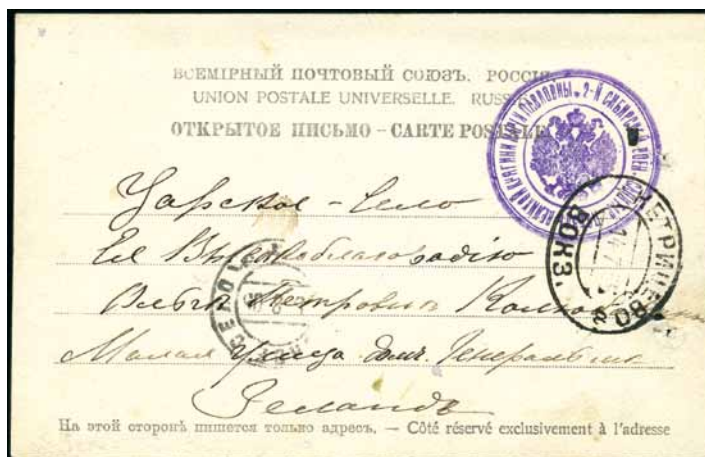 ВСЕМІРНЫЙ ПОЧТОВЫЙ СОЮЗЪ. РОССІЯ.
UNION POSTALE UNIVERSELLE. RUSS
ОТКРЫТОЕ ПИСЬМО – CARTE POSTALE
ПАВЛОВНЫ. 2-Й СИБИРСКІЙ
ВОКЗ.
Царское-Село
Ея Высокоблагородію
Ольгѣ Петровнѣ
Малая улица домъ Генеральши
На этой сторонѣ пишется только адресъ. — Côté réservé exclusivement à l'adresse